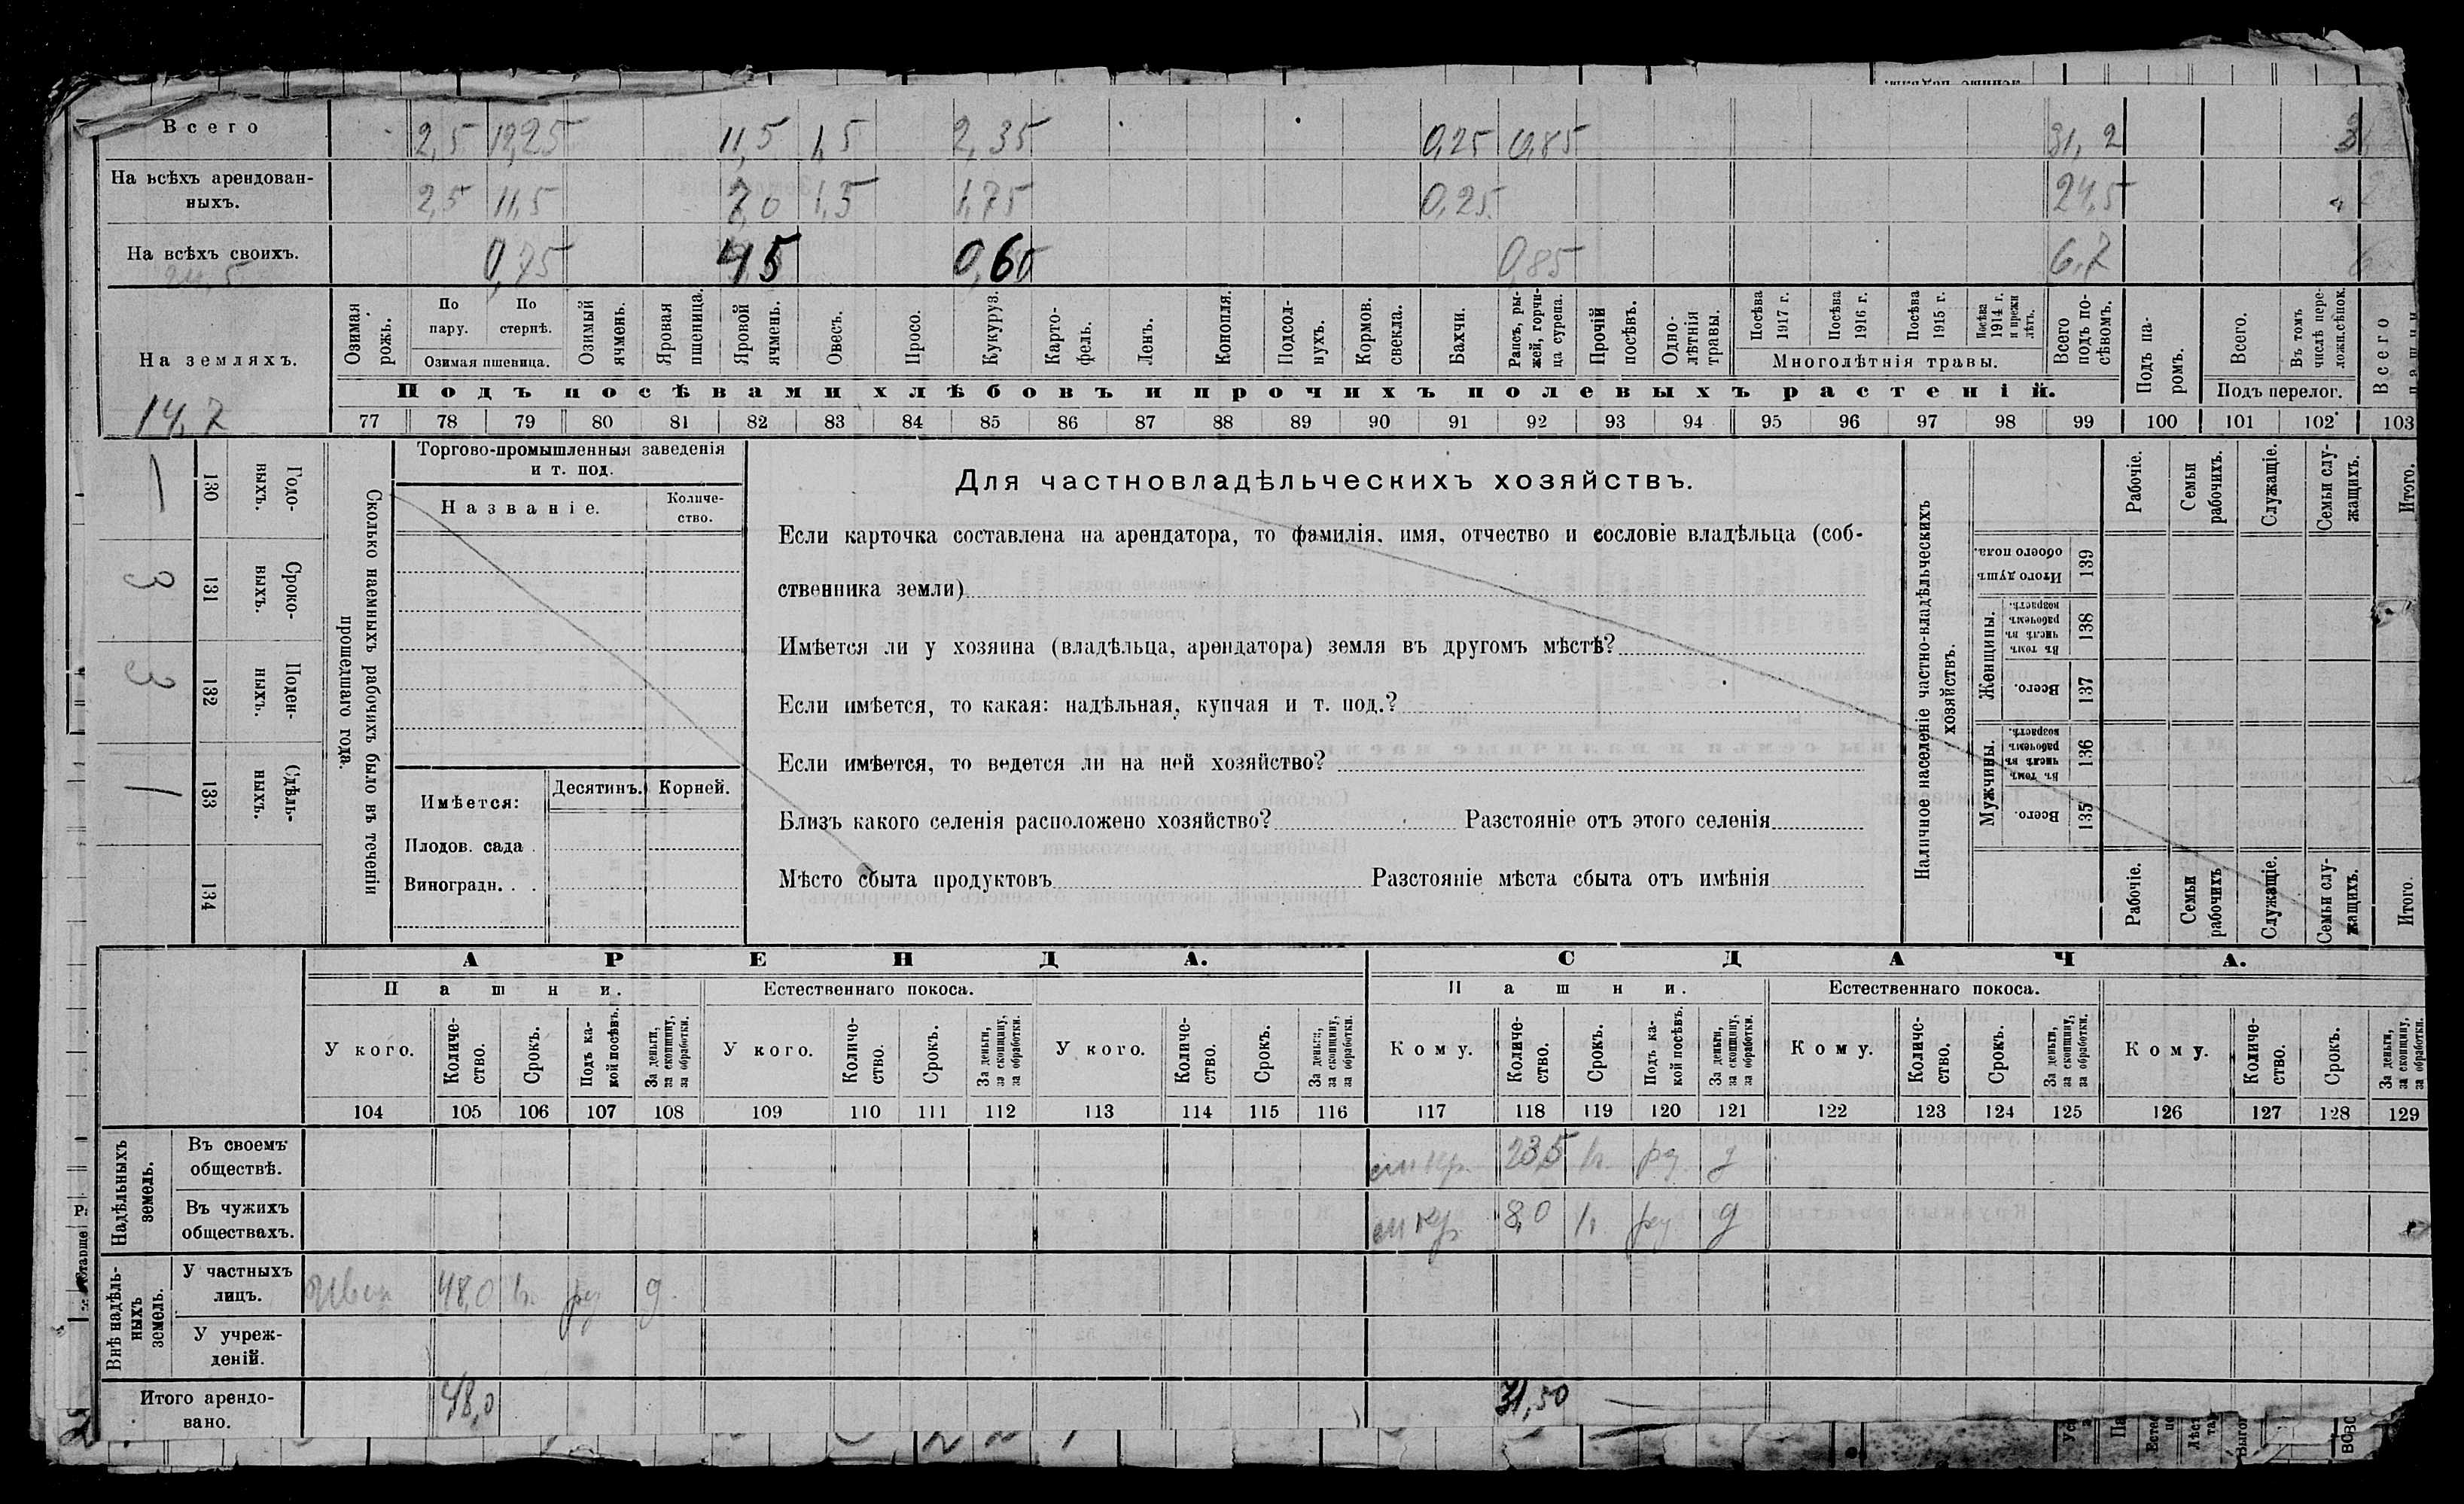 Всего 2,5 12,25 11,5 1,5 2,35 0,25 0,85 31,2
На всѣхъ арендован-
ныхъ. 2,5 11,5 7,0 1,5 1,75 0,25 24,5
На всѣхъ своихъ. 0,75 4,5 0,60 0,85 6,7
24,5
На земляхъ.
14,7
Озимая рожь.
По пару.
По стернѣ.
Озимая пшеница.
Озимый ячмень.
Яровая пшеница.
Яровой ячмень.
Овесъ.
Просо.
Кукуруз.
Карто-
фель.
Ленъ.
Конопля.
Подсол-
нухъ.
Кормов. свекла.
Бахчи.
Рапсъ, ры-
жей, горчи-
ца сурепа.
Прочій посѣвъ.
Одно-
лѣтнія травы.
Посѣва 1917 г.
Посѣва 1916 г.
Посѣва 1915 г.
Посѣва 1914 г. и прежн лѣтъ.
Многолѣтнія травы.
Всего подъ по-
сѣвомъ.
Подъ па-
ромъ.
Всего.
Въ томъ числѣ пере-
ложн.сѣнок.
Подъ перелог.
Всего пашни
Подъ посѣвами хлѣбовъ и прочихъ полевыхъ растеній.
77 78 79 80 81 82 83 84 85 86 87 88 89 90 91 92 93 94 95 96 97 98 99 100 101 102 103
Годо-
выхъ.
130
Сроко-
выхъ.
131
3
Поден-
ныхъ.
132
3
Сдѣль-
ныхъ.
133
134
Сколько наемныхъ рабочихъ было въ теченіи
прошедшаго года.
Торгово-промышленныя заведенія
и т. под.
Названіе.
Количе-
ство.
Имѣется:
Десятинъ. Корней.
Плодов. сада .
Виноградн. . .
Для частновладѣльческихъ хозяйствъ.
Если карточка составлена на арендатора, то фамилія, имя, отчество и сословіе владѣльца (соб-
ственника земли)
Имѣется ли у хозяина (владѣльца, арендатора) земля въ другомъ мѣстѣ?
Если имѣется, то какая: надѣльная, купчая и т. под.?
Если имѣется, то ведется ли на ней хозяйство?
Близъ какого селенія расположено хозяйство? Разстояніе отъ этого селенія
Мѣсто сбыта продуктовъ Разстояніе мѣста сбыта отъ имѣнія
Наличное населеніе частно-владѣльческихъ
хозяйствъ.
Рабочіе.
Семьи рабочихъ.
Служащіе.
Семьи слу-
жащихъ.
Итого.
Итого душъ обоего пола.
139
Женщины.
Въ томъ числѣ въ рабочемъ возрастѣ.
138
Всего.
137
Мужчины.
Въ томъ числѣ въ рабочемъ возрастѣ.
136
Всего.
135
Рабочіе.
Семьи рабочихъ
Служащіе.
Семьи слу-
жащихъ.
Итого.
АРЕНДА. СДАЧА.
Пашни. Естественнаго покоса. Пашни. Естественнаго покоса.
У кого.
Количе-
ство.
Срокъ.
Подъ ка-
кой посѣвъ.
За деньги,
за скопщину,
за обработки.
У кого.
Количе-
ство.
Срокъ.
За деньги,
за скопщину,
за обработки.
У кого.
Количе-
ство.
Срокъ.
За деньги,
за скопщину,
за обработки.
Кому.
Количе-
ство.
Срокъ.
Подъ ка-
кой посѣвъ.
За деньги,
за скопщину,
за обработки.
Кому.
Количе-
ство.
Срокъ.
За деньги,
за скопщину,
за обработки.
Кому.
Количе-
ство.
Срокъ.
За деньги,
за скопщину,
за обработки.
104 105 106 107 108 109 110 111 112 113 114 115 116 117 118 119 120 121 122 123 124 125 126 127 128 129
Надѣльныхъ
земель.
Въ своемъ
обществѣ. 23,5 д
Въ чужихъ
обществахъ. 8,0 д
Внѣ надѣль-
ныхъ
земель.
У частныхъ
лицъ. 48,0 д.
У учреж-
деній.
Итого арендо-
вано. 48,0 31,50